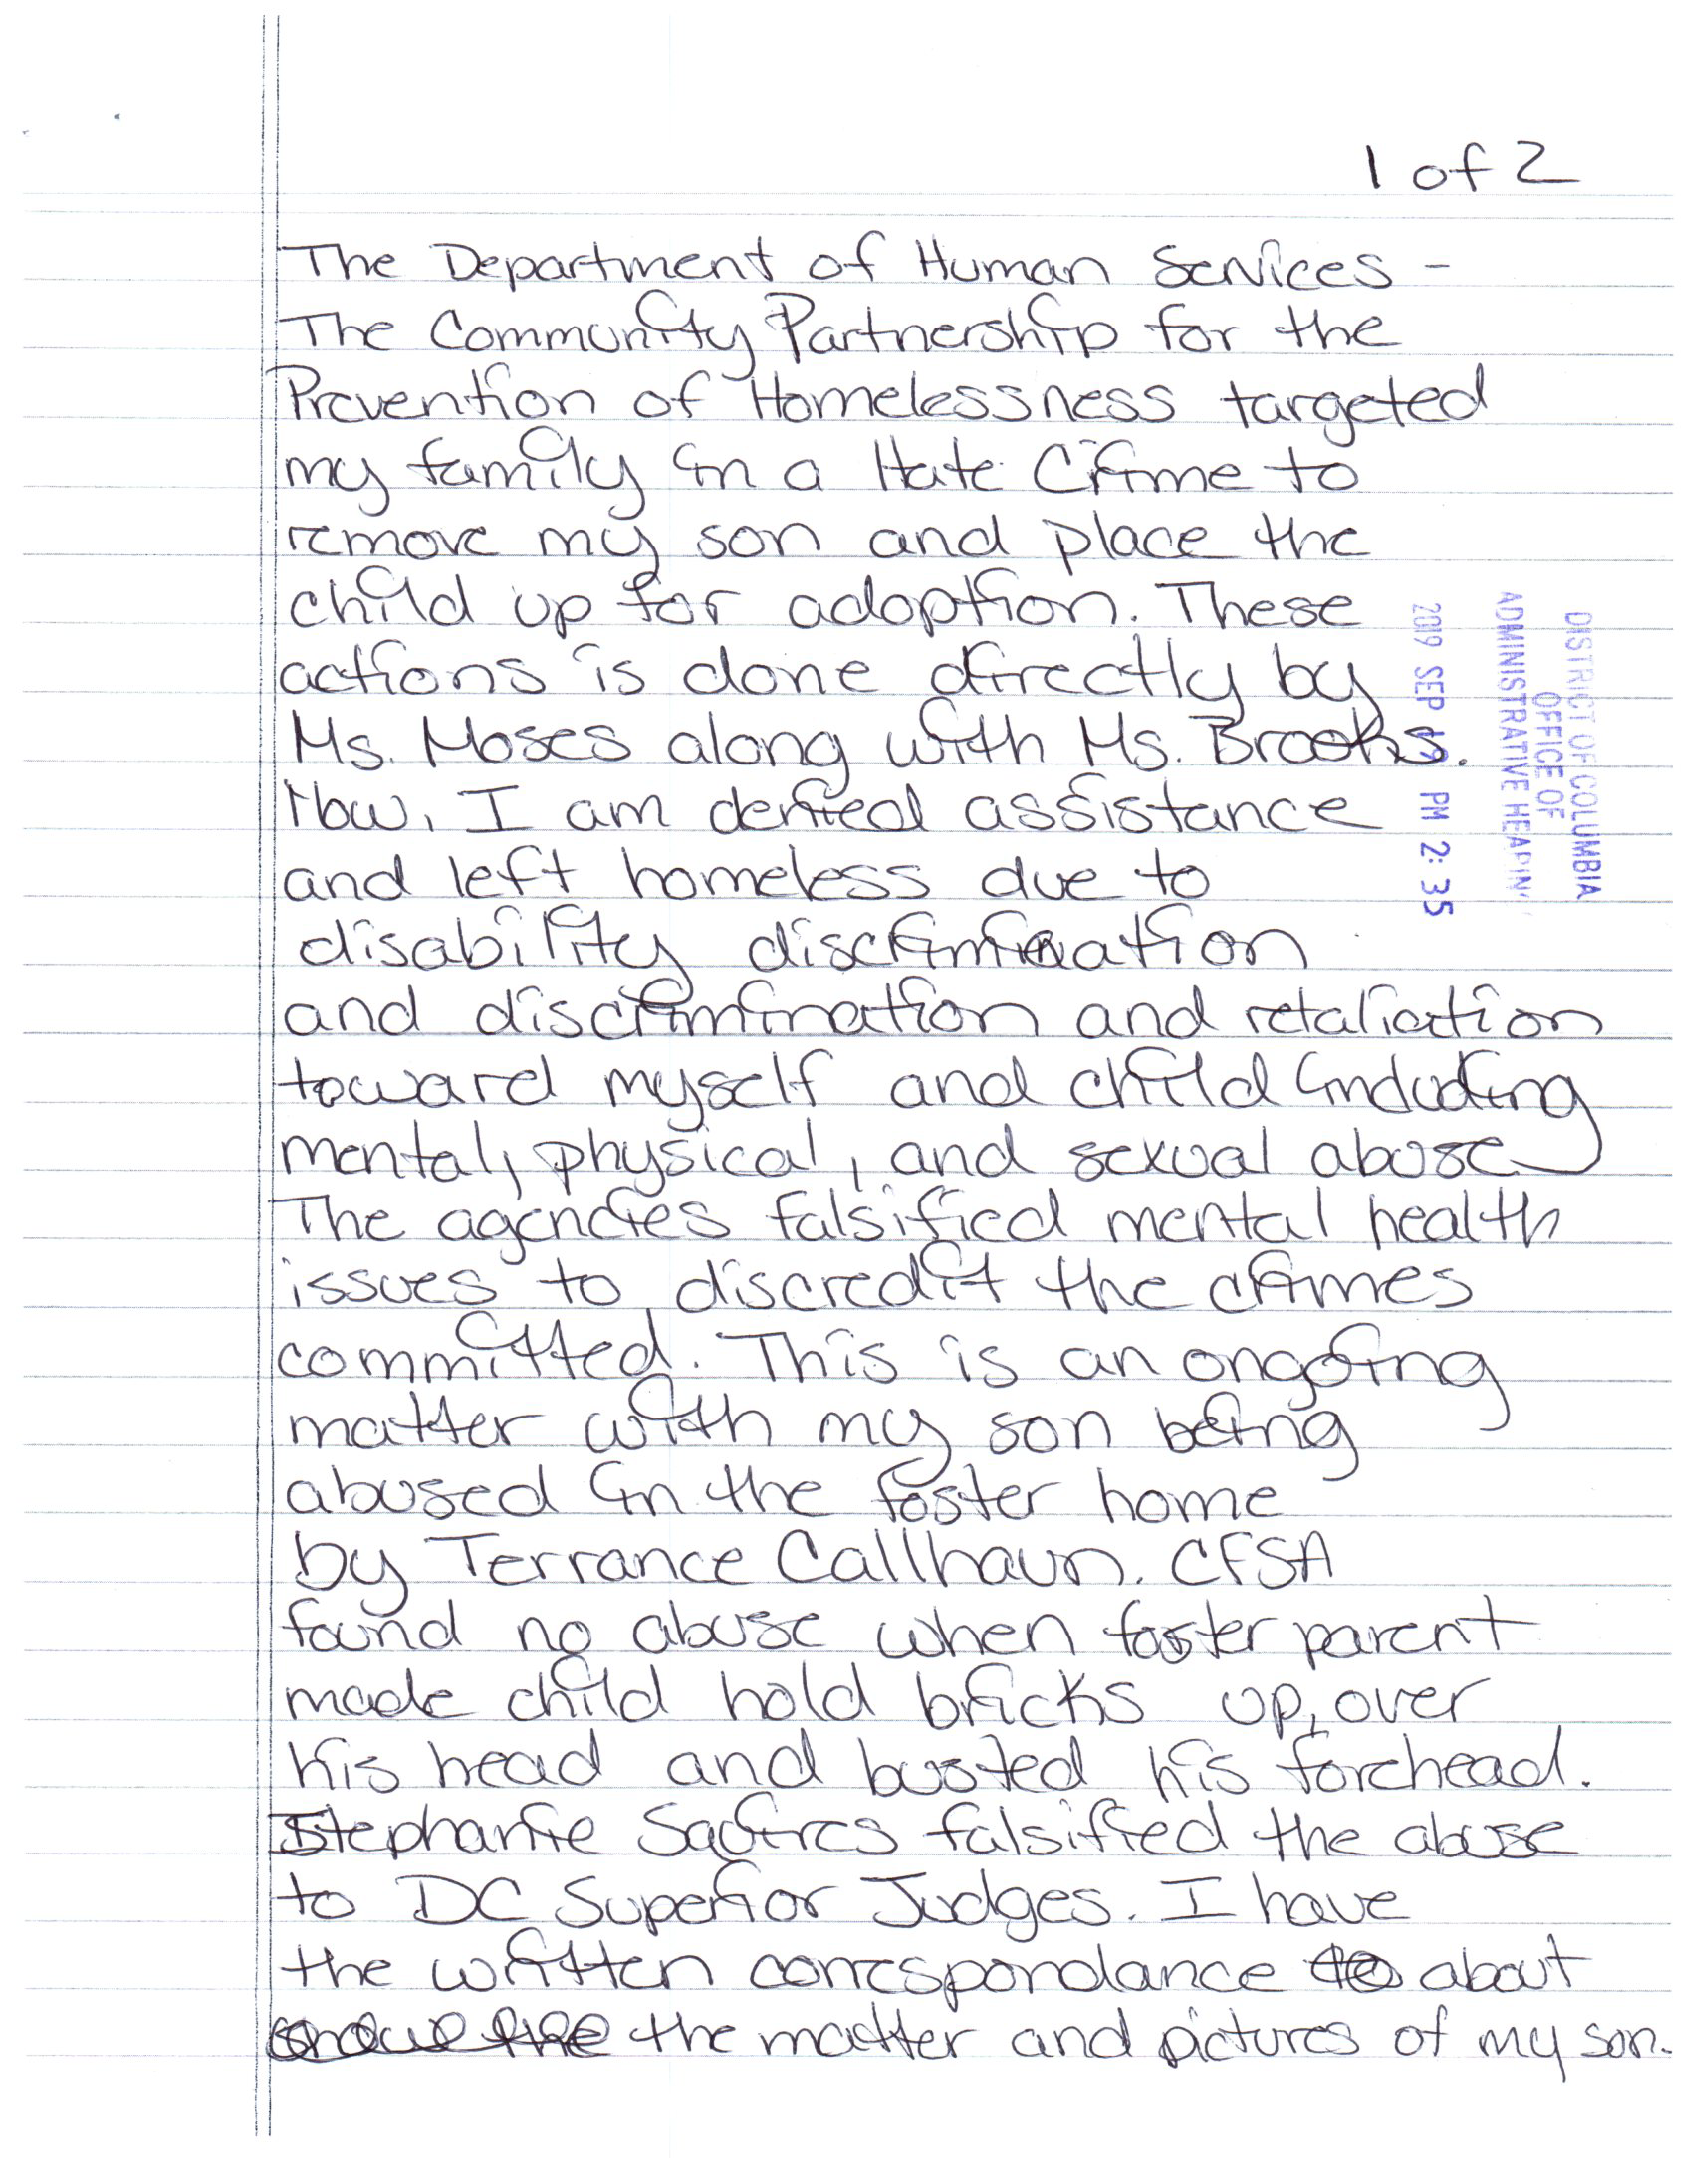 1 of 2
The Department of Human Services -
The Community Partnership for the
Prevention of Homelessness targeted
my family in a Hate Crime to
remove my son and place the
child up for adoption. These
actions is done directly by
Ms. Moses along with Ms. Brooks.
Now, I am denied assistance
and left homeless due to
disability discrimination
and discrimination and retaliation
toward myself and child including
mental, physical, and sexual abuse
The agencies falsified mental health
issues to discredit the crimes
committed. This is an ongoing
matter with my son being
abused in the foster home
by Terrance Callhaun. CFSA
found no abuse when foster parent
made child hold bricks up over
his head and busted his forehead.
Stephanie Squires falsified the abuse
to DC Superior Judges. I have
the written correspondance about
the matter and pictures of my son.
DISTRICT OF COLUMBIA
OFFICE OF
ADMINISTRATIVE HEARIN
2019 SEP 19 PM 2:35